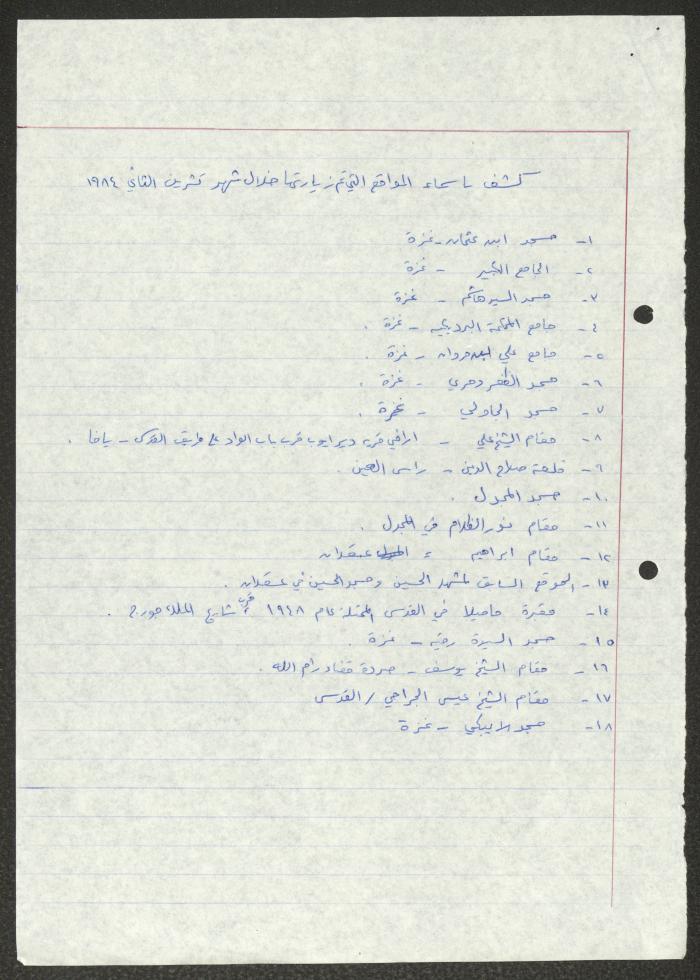 كشف باسماء المواقع التي تم زيارتها خلال شهر تشرين الثاني ١٩٨٤
١- مسجد ابن عثمان - غزة
٢- الجامع الكبير - غزة
٣- مسجد السيد هاشم - غزة
٤- جامع المحكمة البردبكية - غزة .
٥- جامع علي بن مروان - غزة .
٦- مسجد الظفردمري - غزة .
٧- مسجد الجاولي - غزة .
٨- مقام الشيخ علي - اراضي قرية دير ايوب قرب باب الواد على طريق القدس - يافا .
٩- قلعة صلاح الدين - راس العين .
١٠- مسجد المجدل .
١١- مقام نور الظلام في المجدل .
١٢- مقام ابراهيم عسقلان
١٣- الموقع السابق لمشهد الحسين ومسجد الحسين في عسقلان .
١٤- مقبرة ماميلا في القدس المحتلة عام ١٩٤٨ قرب شارع الملك جورج .
١٥- مسجد السيدة رقية - غزة .
١٦- مقام الشيخ يوسف - صردة قضاء رام الله .
١٧- مقام الشيخ عيسى الجراحي / القدس
١٨- مسجد الايبكي - غزة